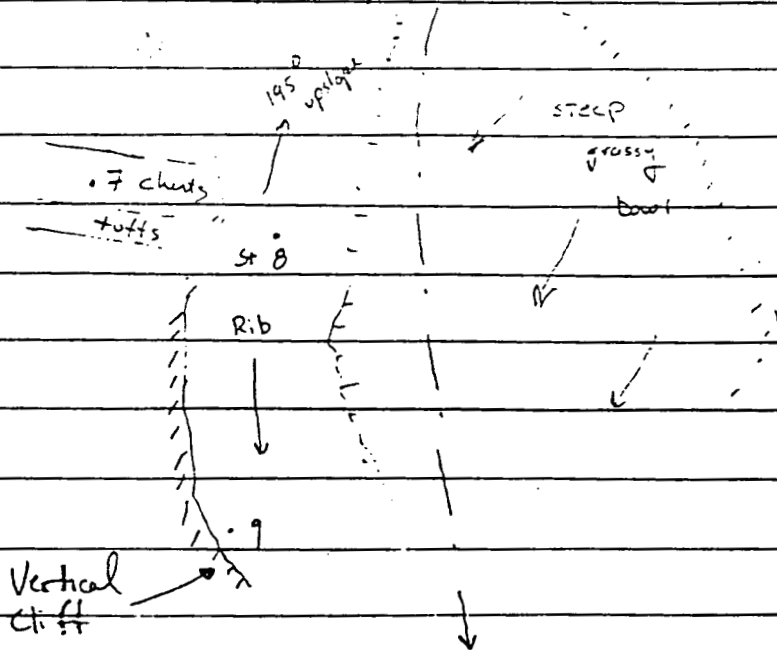 195° upslope
steep
grassy
bowl
.7 cherts
tuffs
St 8
Rib
. 9
Vertical
Cliff